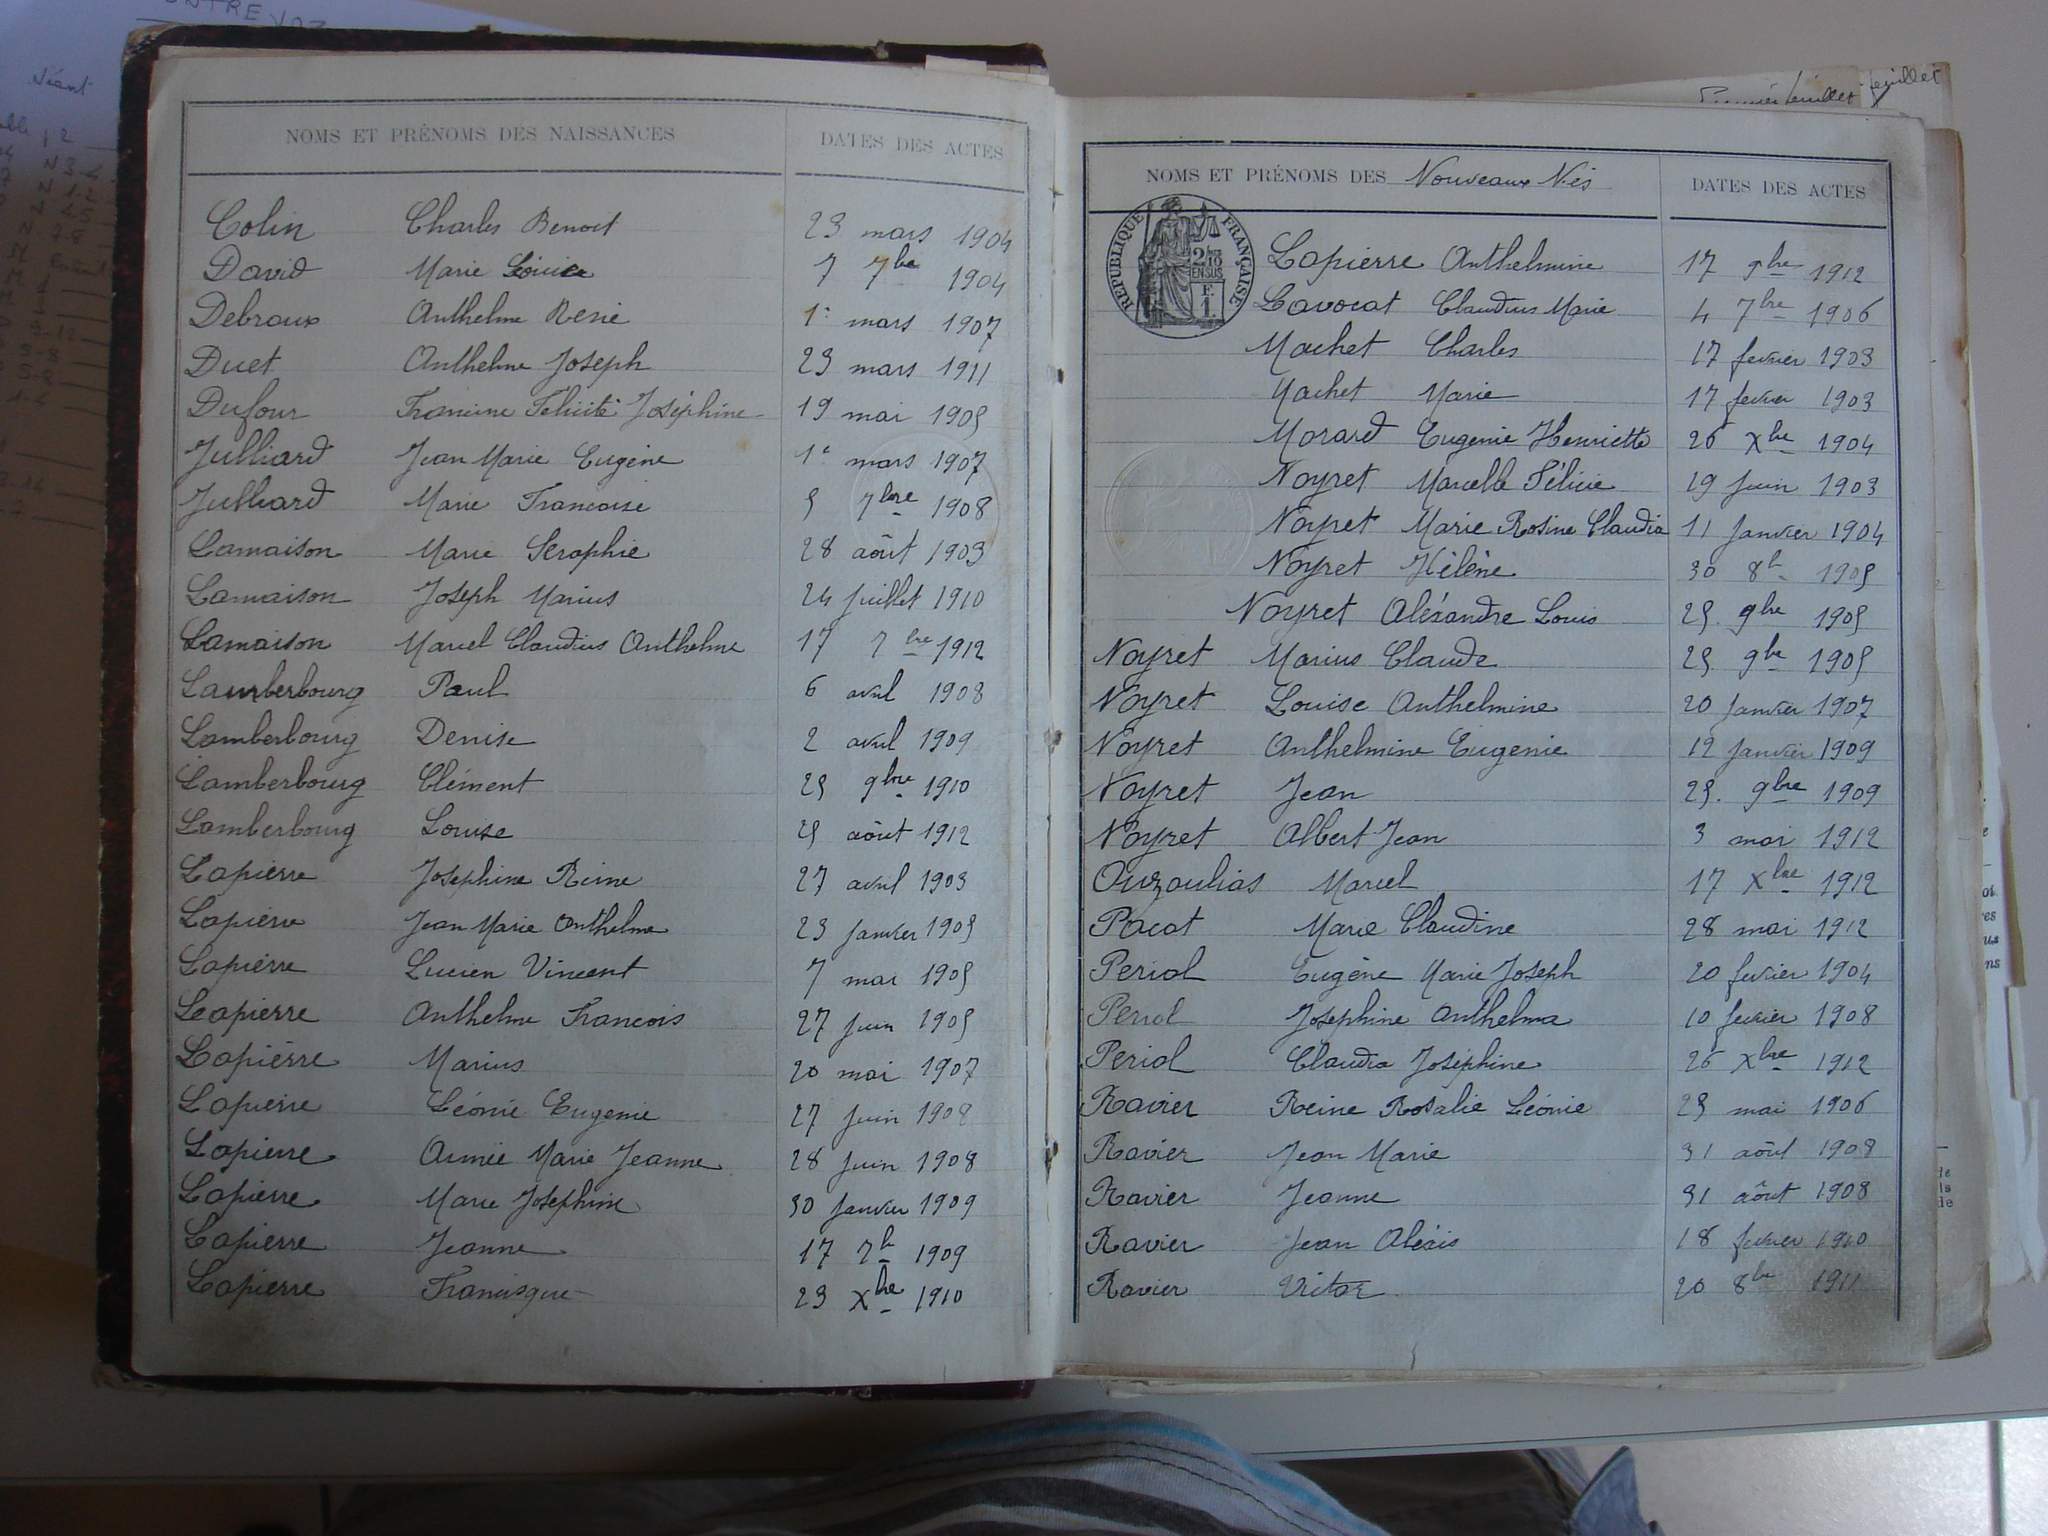 NOMS ET PRÉNOMS DES NAISSANCES DATES DES ACTES
Colin Charles Benoit 23 mars 1904
David Marie Louise 7 7bre 1904
Debroux Anthelme René 1er mars 1907
Duet Anthelme Joseph 23 mars 1911
Dufour Francine Félicité Joséphine 19 mai 1905
Julliard Jean Marie Eugène 1er mars 1907
Julliard Marie Francoise 5 7bre 1908
Lamaison Marie Seraphie 28 août 1903
Lamaison Joseph Marius 24 Juillet 1910
Lamaison Marcel Claudius Anthelme 17 7bre 1912
Lamberbourg Paul 6 avril 1908
Lamberbourg Denise 2 avril 1909
Lamberbourg Clément 25 9bre 1910
Lamberbourg Louise 25 août 1912
Lapierre Joséphine Reine 27 avril 1903
Lapierre Jean Marie Anthelme 23 Janvier 1905
Lapierre Lucien Vincent 7 mai 1905
Lapierre Anthelme Francois 27 Juin 1905
Lapierre Marius 20 mai 1907
Lapierre Léonie Eugenie 27 Juin 1908
Lapierre Aimée Marie Jeanne 28 Juin 1908
Lapierre Marie Joséphine 30 Janvier 1909
Lapierre Jeanne 17 7b 1909
Lapierre Francisque 23 Xbre 1910
NOMS ET PRÉNOMS DES Nouveaux Nés DATES DES ACTES
RÉPUBLIQUE FRANÇAISE
2/10 EN SUS
F. 1.
Lapierre Anthelmine 17 9bre 1912
Lavocat Claudius Marie 4 7bre 1906
Machet Charles 17 fevrier 1903
Machet Marie 17 fevrier 1903
Morard Eugenie Henriette 26 Xbre 1904
Noyret Marcelle Félicie 19 Juin 1903
Noyret Marie Rosine Claudia 11 Janvier 1904
Noyret Hélène 30 8b 1905
Noyret Aléxandre Louis 25. 9bre 1905
Noyret Marius Claude 25 9bre 1905
Noyret Louise Anthelmine 20 Janvier 1907
Noyret Anthelmine Eugenie 12 Janvier 1909
Noyret Jean 25. 9bre 1909
Noyret Albert Jean 3 mai 1912
Ouzoulias Marcel 17 Xbre 1912
Pacat Marie Claudine 28 mai 1912
Periol Eugène Marie Joseph 20 fevrier 1904
Periol Joséphine Anthelma 10 fevrier 1908
Periol Claudia Joséphine 26 Xbre 1912
Ravier Reine Rosalie Léonie 23 mai 1906
Ravier Jean Marie 31 août 1908
Ravier Jeanne 31 août 1908
Ravier Jean Aléxis 18 fevrier 1910
Ravier Victor 20 8bre 1911